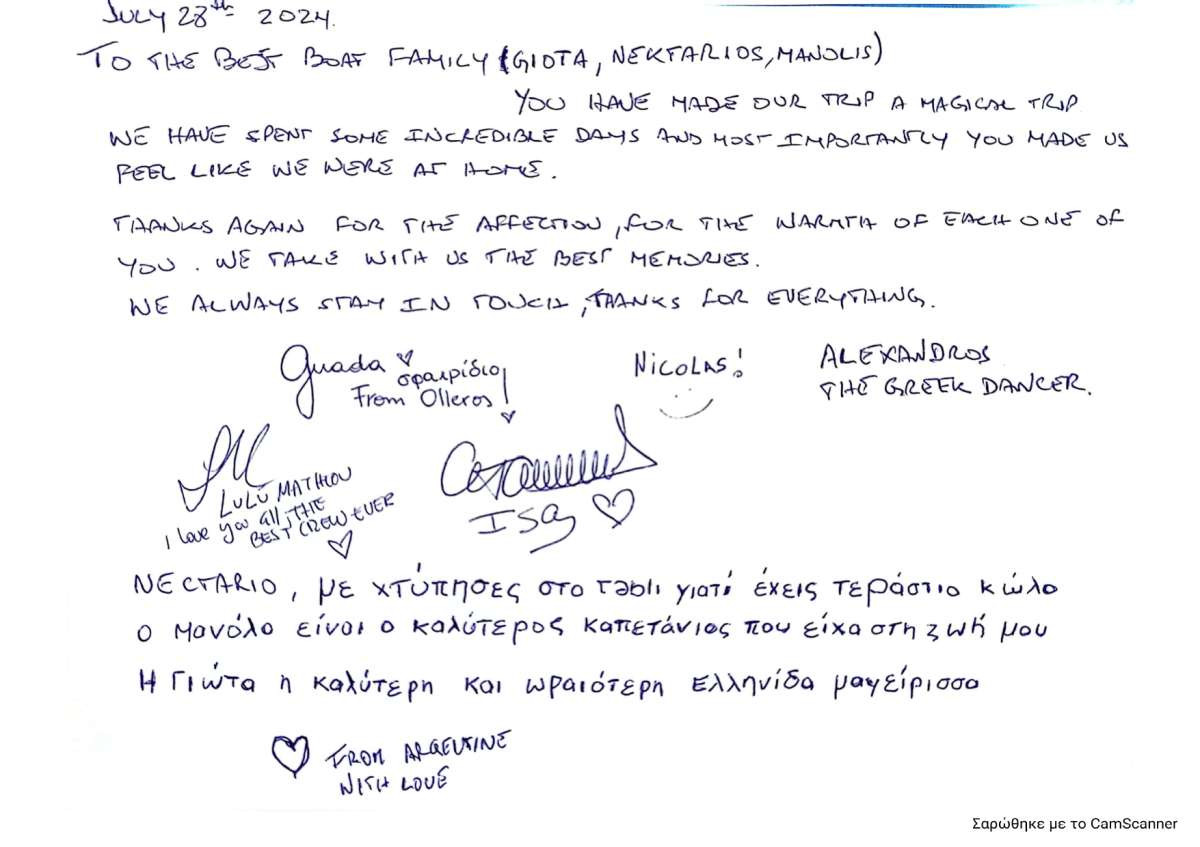 JULY 28th 2024.
TO THE BEST BOAT FAMILY (GIOTA, NEKTARIOS, MANOLIS)
YOU HAVE MADE OUR TRIP A MAGICAL TRIP
WE HAVE SPENT SOME INCREDIBLE DAYS AND MOST IMPORTANTLY YOU MADE US
FEEL LIKE WE WERE AT HOME.
THANKS AGAIN FOR THE AFFECTION, FOR THE WARMTH OF EACH ONE OF
YOU. WE TAKE WITH US THE BEST MEMORIES.
WE ALWAYS STAY IN TOUCH, THANKS FOR EVERYTHING.
Guada
σφαιρίδιο
From Olleros!
Nicolas!
ALEXANDROS
THE GREEK DANCER.
LULÚ
I love you all, THE
BEST CREW EVER
Isa
NECTARIO, με χτύπησες στο ταbli γιατί έχεις τεράστιο κώλο
ο Μανόλο είναι ο καλύτερος καπετάνιος που είχα στη ζωή μου
Η Γιώτα η καλύτερη και ωραιότερη Ελληνίδα μαγείρισσα
FROM ARGENTINE
WITH LOVE
Σαρώθηκε με το CamScanner